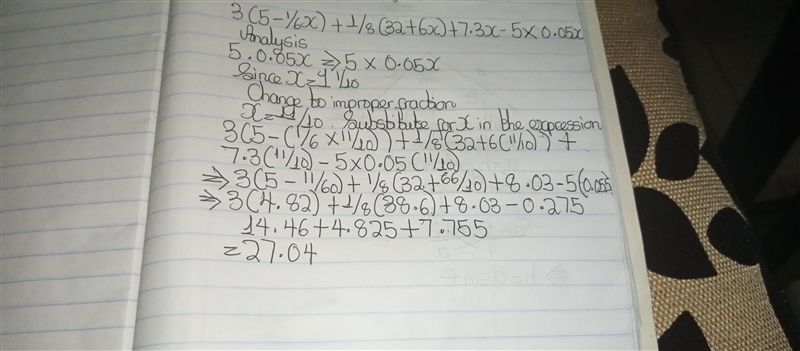 3(5-1/6x)+1/8(32+6x)+7.3x-5×0.05x
Analysis
5.0.05x ⇒ 5 × 0.05x
Since x=1 1/10
Change to improper fraction
x=11/10. Substitute for x in the expression
3(5-(1/6×11/10))+1/8(32+6(11/10))+
7.3(11/10)-5×0.05(11/10)
⇒3(5-11/60)+1/8(32+66/10)+8.03-5(0.055)
⇒3(4.82)+1/8(38.6)+8.03-0.275
14.46+4.825+7.755
=27.04